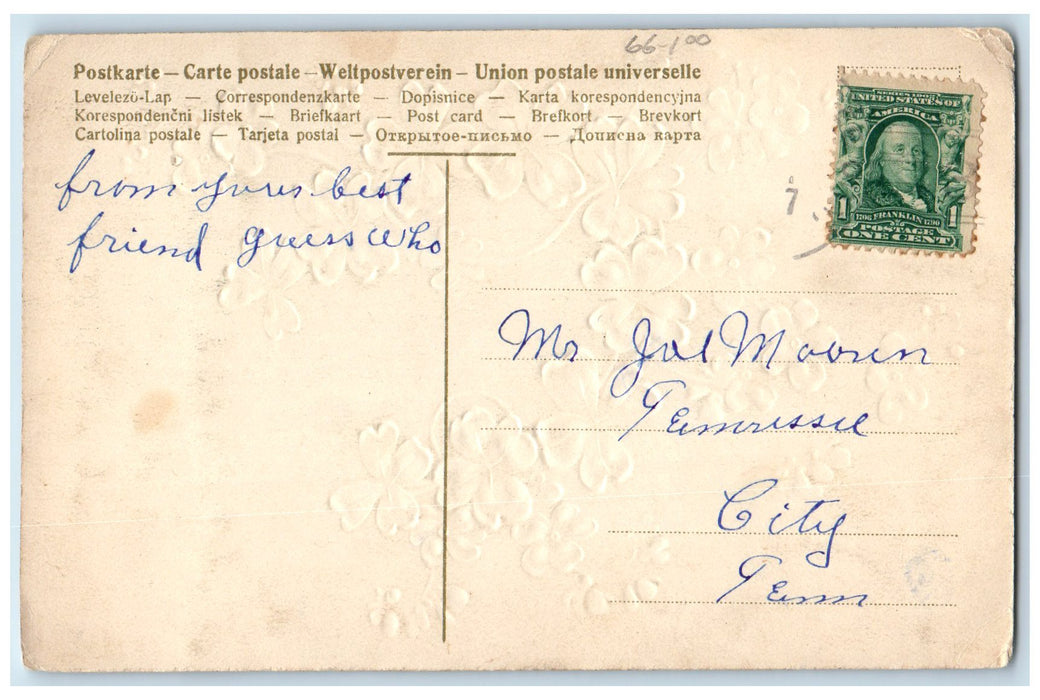 66-1⁰⁰
Postkarte – Carte postale – Weltpostverein – Union postale universelle
Levelező-Lap — Correspondenzkarte — Dopisnice — Karta korespondencyjna
Korespondenční lístek — Briefkaart — Post card — Brefkort — Brevkort
Cartolina postale — Tarjeta postal — Открытое-письмо — Дописна карта
SERIES 1902
UNITED STATES OF
AMERICA
1706 FRANKLIN 1790
1 1
POSTAGE
ONE CENT
7
from yours best
friend guess who
Mr Moosen
Tennessee
City
Tenn